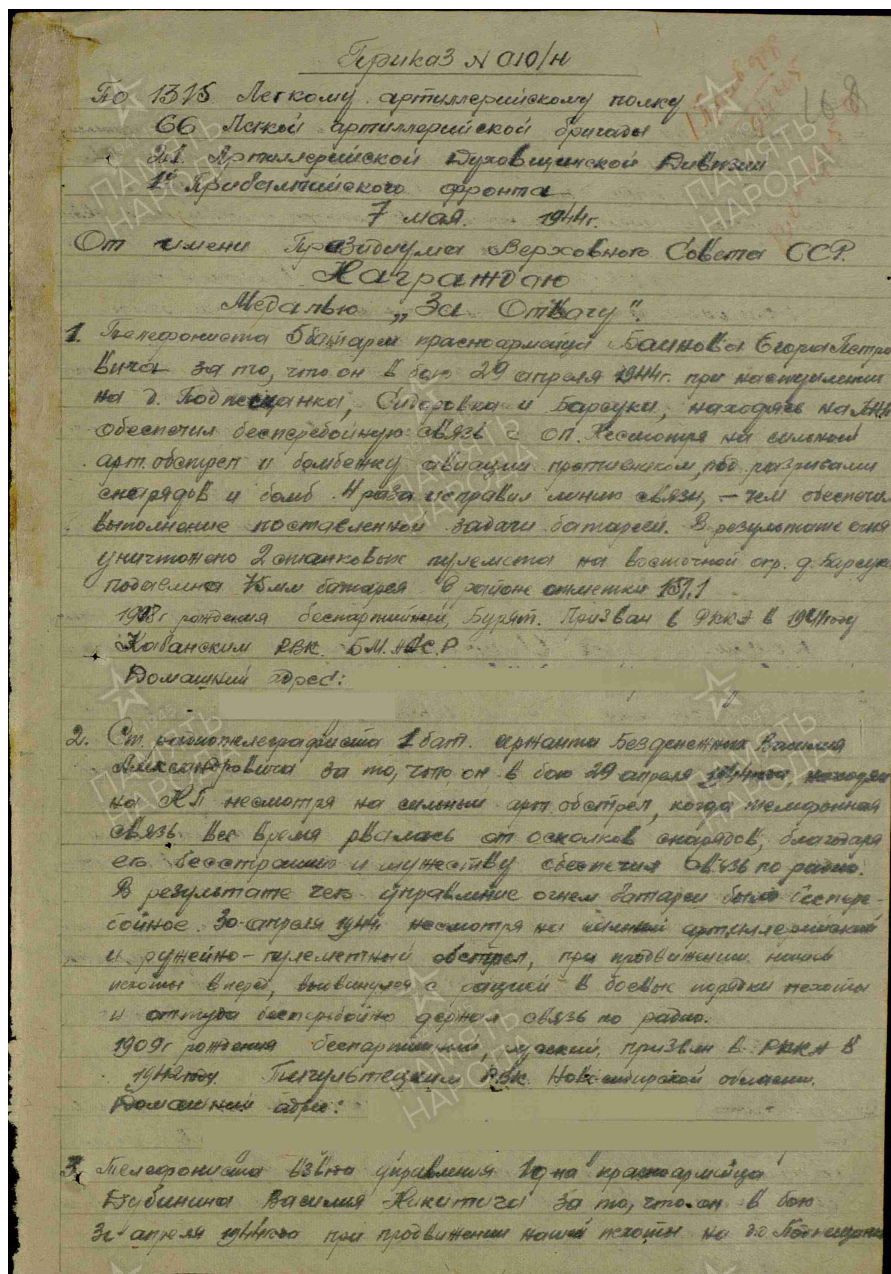 Приказ № 010/н
По 1315 Легкому артиллерийскому полку
66 Легкой артиллерийской бригады
21 Артиллерийской Духовщинской Дивизии
1го Прибалтийского фронта
7 мая 1944г.
От имени Президиума Верховного Совета ССР.
Награждаю
Медалью „За Отвагу".
1. Телефониста 5 батареи красноармейца Баинова Егора Петро
вича за то, что он в бою 29 апреля 1944г. при наступлении
на д. Подпещанка, Сидоровка и Барсуки, находясь на
обеспечил бесперебойную связь с ОП. Несмотря на сильный
арт. обстрел и бомбежку авиации противником, под разрывами
снарядов и бомб 4 раза исправил линию связи, – чем обеспечил
выполнение поставленной задачи батареей. В результате огня
уничтожено 2 станковых пулемета на восточной окр. д. Барсуки
подавлена 75мм батарея в районе отметки 157,1
рождения беспартийный, Бурят. Призван в РККА в 1941 году
Кабанским РВК Б.М.АССР
Домашний адрес:
2. Ст. радиотелеграфиста 1 бат. сержанта Безденежных Василия
Александровича за то, что он в бою 29 апреля 1944 года, находясь
на НП несмотря на сильный арт. обстрел, когда телефонная
связь все время рвалась от осколков снарядов, благодаря
его бесстрашию и мужеству обеспечил связь по радио.
В результате чего управление огнем батареи было беспере-
бойное. 30 апреля 1944 несмотря на сильный артиллерийский
и ружейно-пулеметный обстрел, при продвижении нашей
пехоты вперед, выдвинулся с рацией в боевые порядки пехоты
и оттуда бесперебойно держал связь по радио.
1909г рождения беспартийный, русский, призван в РККА в
1942 году РВК Новосибирской области.
Домашний адрес:
3. Телефониста взвода управления 1 д-на красноармейца
Дубинина Василия Никитича за то, что он в бою
апреля 1944 года при продвижении нашей пехоты на д.
ПАМЯТЬ
НАРОДА